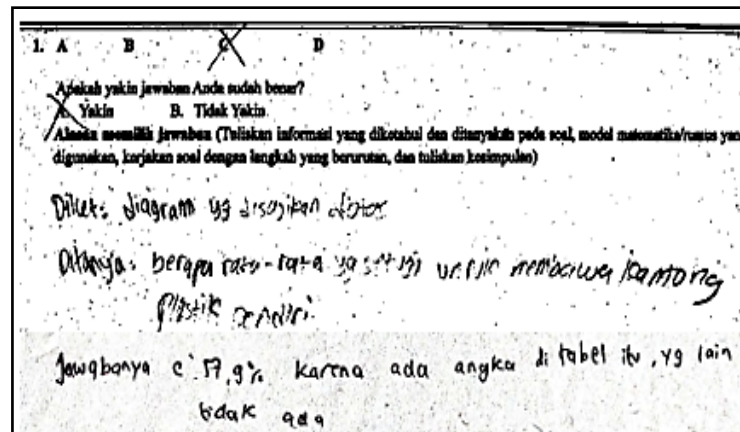 1. A B C D
Apakah yakin jawaban Anda sudah benar?
A. Yakin B. Tidak Yakin
Alasan memilih jawaban (Tuliskan informasi yang diketahui dan ditanyakan pada soal, model matematika/rumus yang
digunakan, kerjakan soal dengan langkah yang berurutan, dan tuliskan kesimpulan)
Diket: diagram yg disajikan diatas
Ditanya: berapa rata-rata yg setuju untuk membawa kantong
Plastik sendiri
Jawabanya c 57,9% karena ada angka di tabel itu, yg lain
tidak ada